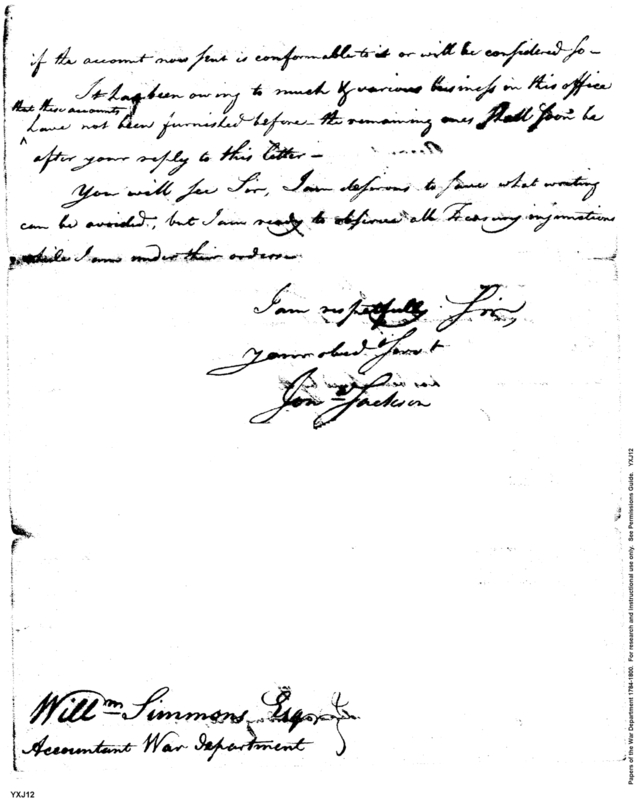 if the account now sent is conformable to it or will be considered so—
It has been owing to much & various business in this office
that these accounts
have not been furnished before— the remaining ones shall soon be
after your reply to this letter—
You will see Sir, I am desirous to save what writing
can be avoided, but I am ready to observe all Treasury injunctions
while I am under their orders—
I am respectfully Sir,
your obed Servt
Jona Jackson
Willm Simmons Esqr
Accountant War Department
YXJ12
Papers of the War Department 1784-1800. For research and instructional use only. See Permissions Guide. YXJ12